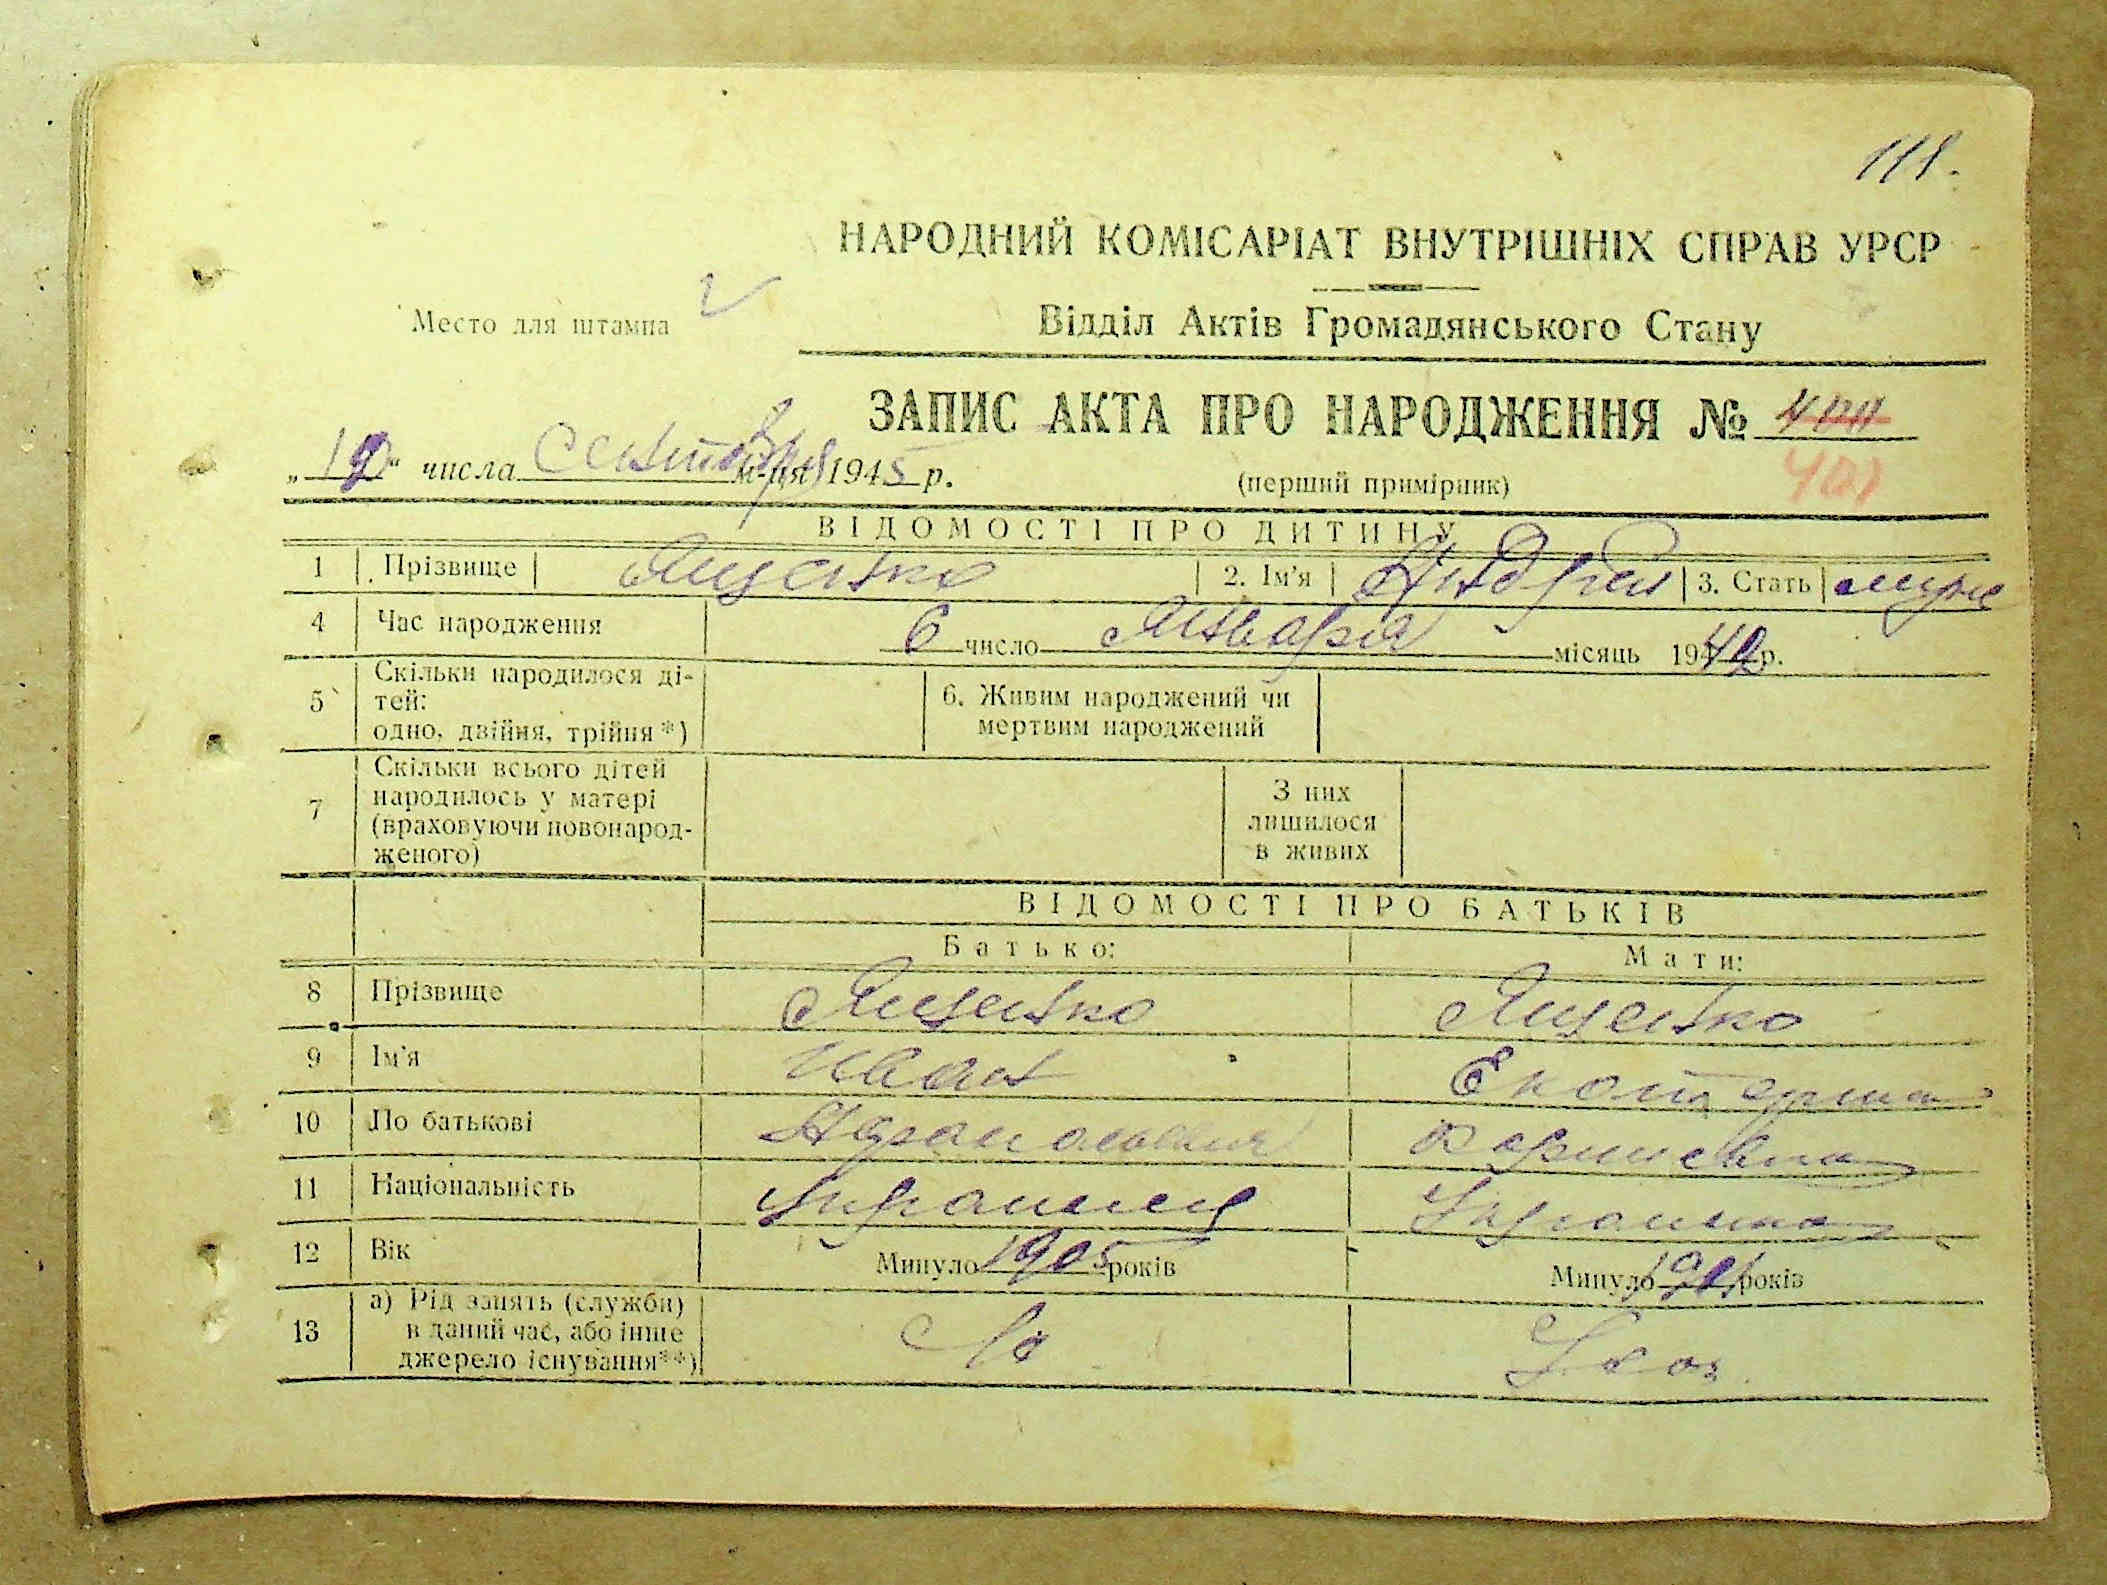 111.
НАРОДНИЙ КОМІСАРІАТ ВНУТРІШНІХ СПРАВ УРСР
Место для штампа
Відділ Актів Громадянського Стану
ЗАПИС АКТА ПРО НАРОДЖЕННЯ №
401
„ “ числа Сентября м-ця 1945 р. (перший примірник)
ВІДОМОСТІ ПРО ДИТИНУ
1 Прізвище Ященко 2. Ім'я Андрей 3. Стать муж
4 Час народження 6 число Января місяць 1942 р.
5 Скільки народилося ді-
тей:
одно, двійня, трійня*)
6. Живим народжений чи
мертвим народжений
7 Скільки всього дітей
народилось у матері
(враховуючи новонарод-
женого)
З них
лишилося
в живих
ВІДОМОСТІ ПРО БАТЬКІВ
Батько: Мати:
8 Прізвище Ященко Ященко
9 Ім'я Иван Екатерина
10 По батькові
11 Національність Украинец Украинка
12 Вік Минуло 1905 років Минуло 1901 років
13 а) Рід занять (служби)
в даний час, або інше
джерело існування**)